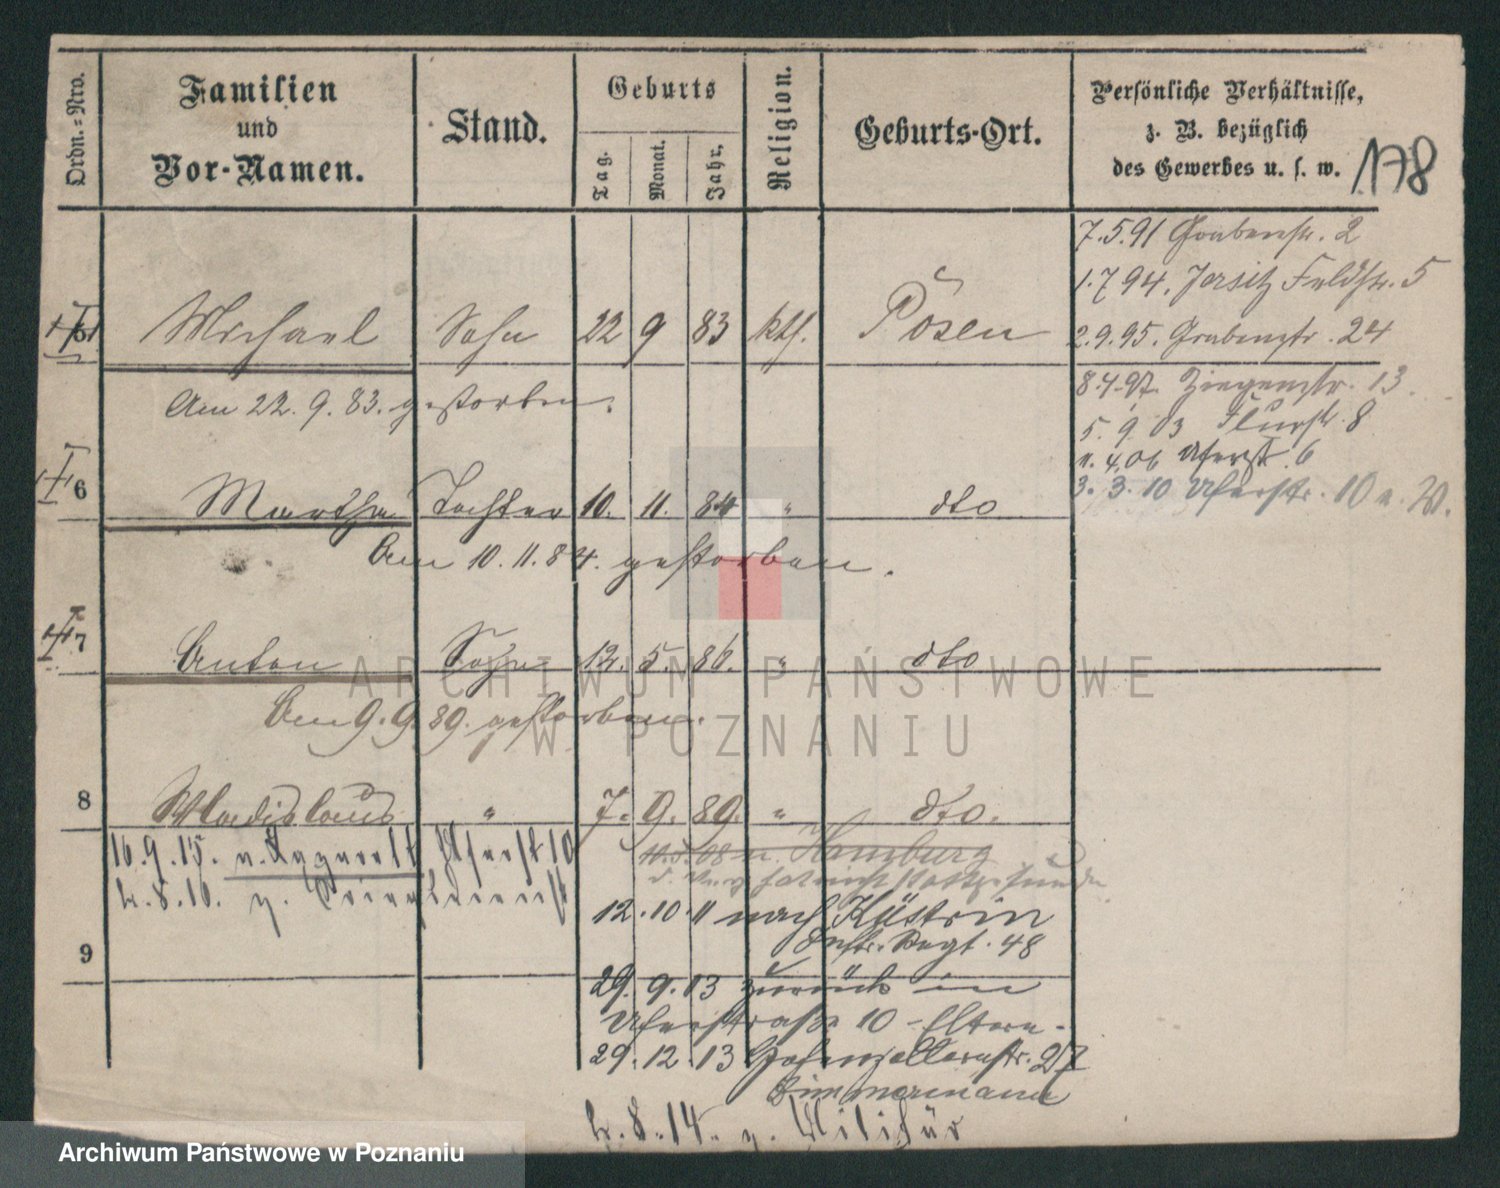 Ordn.-Nro.
Familien
und
Vor-Namen.
Stand.
Geburts
Tag.
Monat.
Jahr.
Religion.
Geburts-Ort.
Persönliche Verhältnisse,
z. B. bezüglich
des Gewerbes u. s. w.
178
7.5.91 Grabenstr. 2
1.7 94. Jersitz Feldstr. 5
2.9.95. Grabenstr. 24
5 Michael Sohn 22 9 83 kth. Posen
8.4.97. Ziegenstr. 13
Am 22. 9. 83. gestorben.
5. 9. 03 Flurstr. 8
11. 4.06 Uferstr. 6
3. 3. 10 Uferstr. 10 n. W.
6 Martha Tochter 10. 11. 84 " dto
Am 10. 11. 84. gestorben.
7 Anton Sohn 12. 5. 86. " dto
ARCHIWUM PAŃSTWOWE
Am 9. 9. 89. gestorben.
W POZNANIU
8 Wladislaus " 7. 9. 89. " dto.
16. 9. 15. Uferst 10
08 n. Hamburg
12. 10. 11 nach Küstrin
Inftr. Regt. 48
9
29. 9. 13 zurück in
Uferstraße 10 - Eltern -
29. 12. 13 Hohenzollernstr. 27
Zimmermann
8. 14. z. Militär
Archiwum Państwowe w Poznaniu